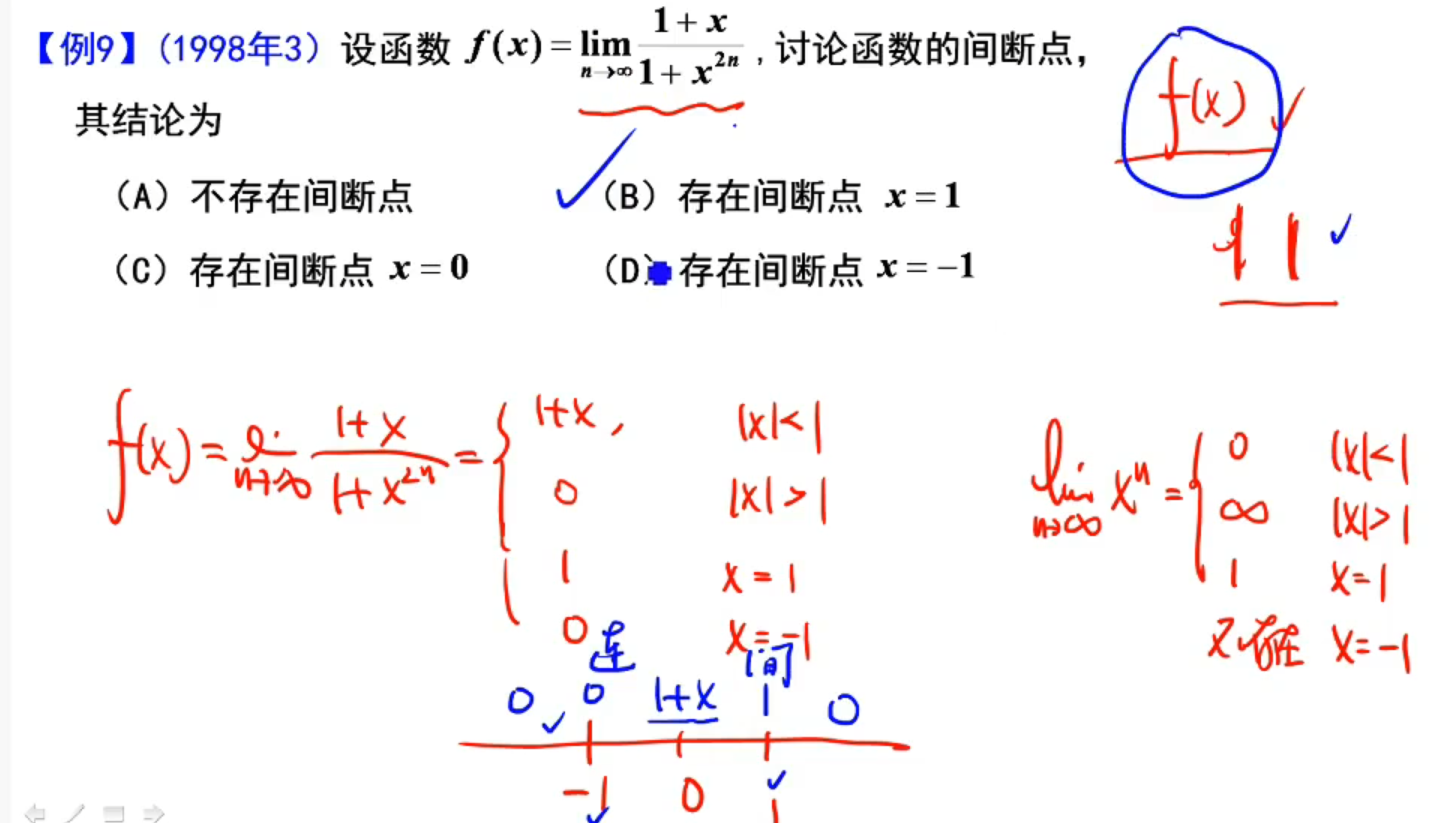 【例9】(1998年3) 设函数 f(x) = lim_{n→∞} (1+x)/(1+x^{2n}) , 讨论函数的间断点，
其结论为
(A) 不存在间断点 (B) 存在间断点 x = 1
(C) 存在间断点 x = 0 (D) 存在间断点 x = −1
f(x)
f(x) = lim_{n→∞} (1+x)/(1+x^{2n}) = { 1+x, |x|<1
0 |x|>1
1 x=1
0 x=-1
lim_{n→∞} x^n = { 0 |x|<1
∞ |x|>1
1 x=1
不存在 x=-1
连 间
0 0 1+x 1 0
-1 0 1